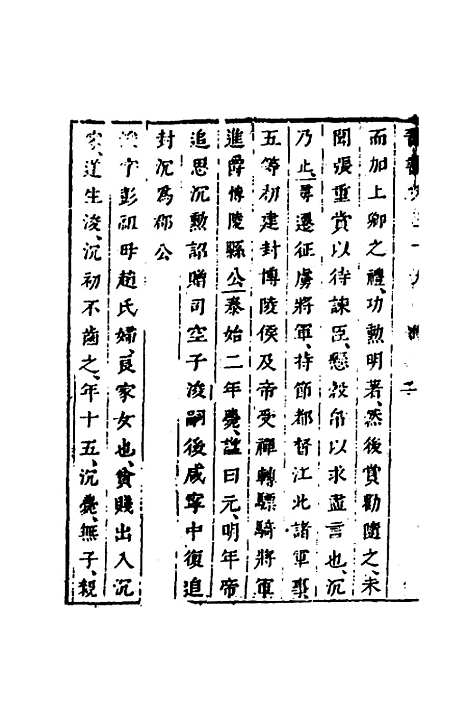 而加上卿之禮、功勲明著、然後賞勸隨之、未
聞張重賞以待諫臣、懸穀帛以求盡言也、沉
乃止、尋遷征虜將軍、持節都督江北諸軍事
五等初建封博陵侯及帝受禪轉驃騎將軍
進爵博陵縣公泰始二年薨、諡曰元、明年帝
追思沉勲詔贈司空子浚嗣後咸寧中復追
封沉爲郡公
浚字彭祖母趙氏婦、良家女也、貧賤出入沉
家、遂生浚、沉初不齒之、年十五、沉薨、無子、親